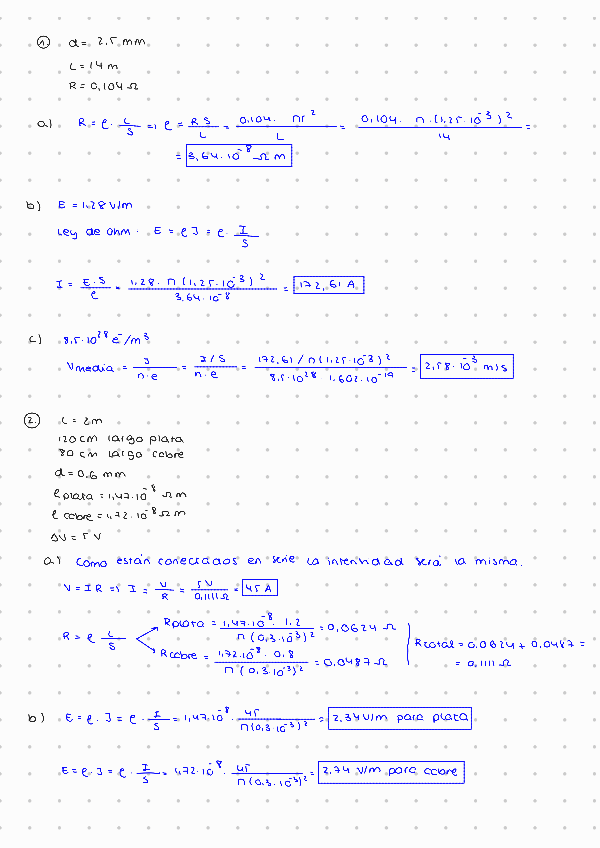 1. d = 2.5 mm
L = 14 m
R = 0,104 Ω
a) R = ρ · L/S => ρ = R S/L = 0,104 · πr²/L = 0,104 · π · (1,25 · 10⁻³)²/14 =
= 3,64 · 10⁻⁸ Ω m
b) E = 1,28 V/m
Ley de Ohm · E = ρ J = ρ · I/S
I = E · S/ρ = 1,28 · π (1,25 · 10⁻³)²/3,64 · 10⁻⁸ = 172,61 A
c) 8,5 · 10²⁸ e⁻/m³
Vmedia = J/n · e = I/S/n · e = 172,61/π(1,25 · 10⁻³)²/8,5 · 10²⁸ · 1.602 · 10⁻¹⁹ = 2,58 · 10⁻³ m/s
2. L = 2m
120 cm largo plata
80 cm largo cobre
d = 0.6 mm
ρ plata = 1,47 · 10⁻⁸ Ω m
ρ cobre = 1,72 · 10⁻⁸ Ω m
ΔV = 5 V
a) Como están conectados en serie la intensidad será la misma.
V = I R => I = V/R = 5V/0,1111 Ω = 45 A
R = ρ L/S
Rplata = 1,47 · 10⁻⁸ · 1.2/π (0,3 · 10⁻³)² = 0,0624 Ω
Rcobre = 1,72 · 10⁻⁸ · 0.8/π (0.3 · 10⁻³)² = 0.0487 Ω
Rtotal = 0.0624 + 0.0487 =
= 0,1111 Ω
b) E = ρ · J = ρ · I/S = 1,47 · 10⁻⁸ · 45/π(0,3 · 10⁻³)² = 2.34 V/m para plata
E = ρ · J = ρ · I/S = 1,72 · 10⁻⁸ · 45/π (0.3 · 10⁻³)² = 2.74 V/m para cobre